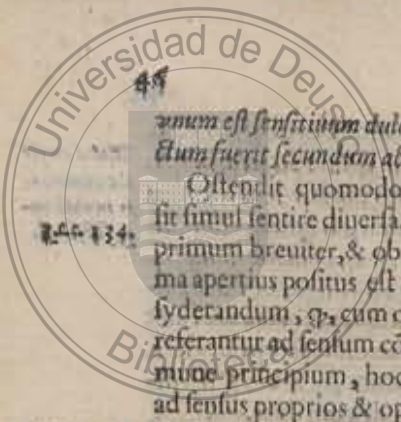 Universidad de Deusto
Biblioteca
vnum est sensitiuum dul
ctum fuerit secundum a
Ostendit quomodo
sit simul sentire diuersa
primum breuiter, & ob
ma apertius positus est
syderandum, cum
referantur ad sensum
mune principium, hoc
ad sensus proprios & op